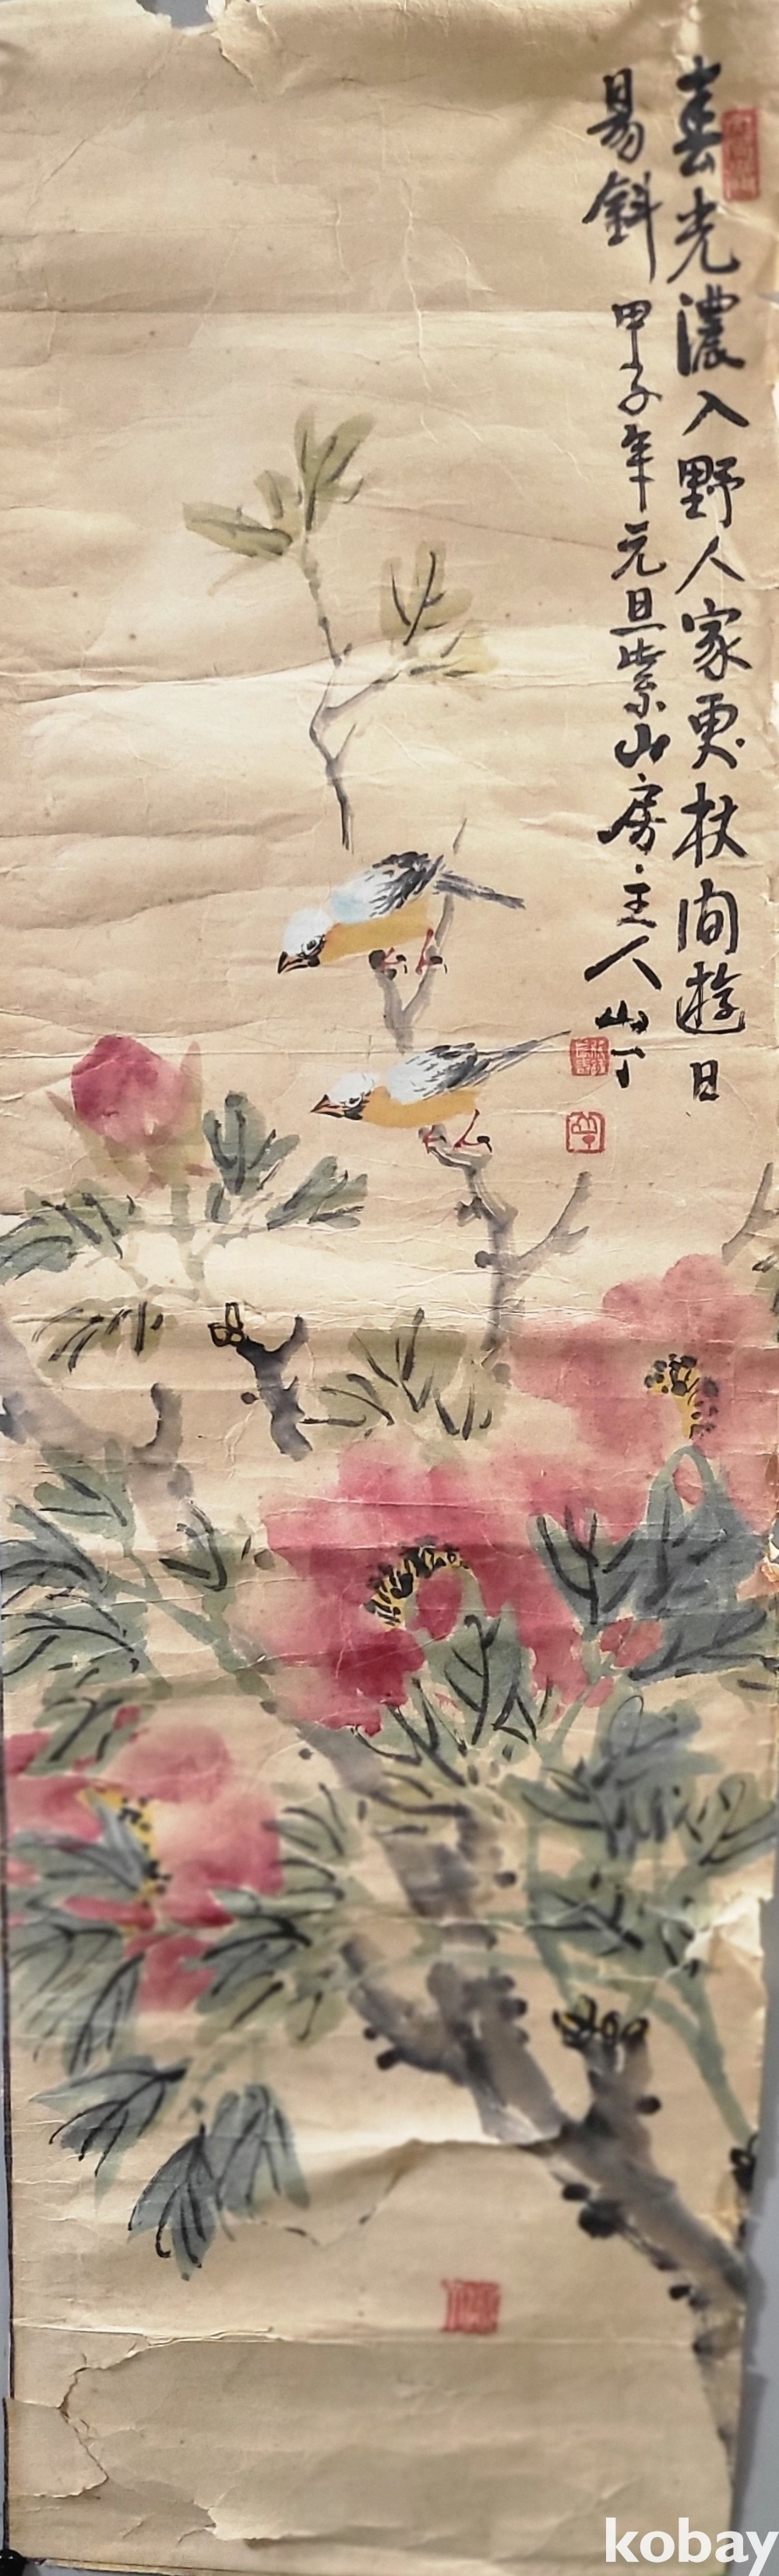 春光濃入野人家更杖向遊日
易斜 甲子年元旦紫山房主人山丁
kobay